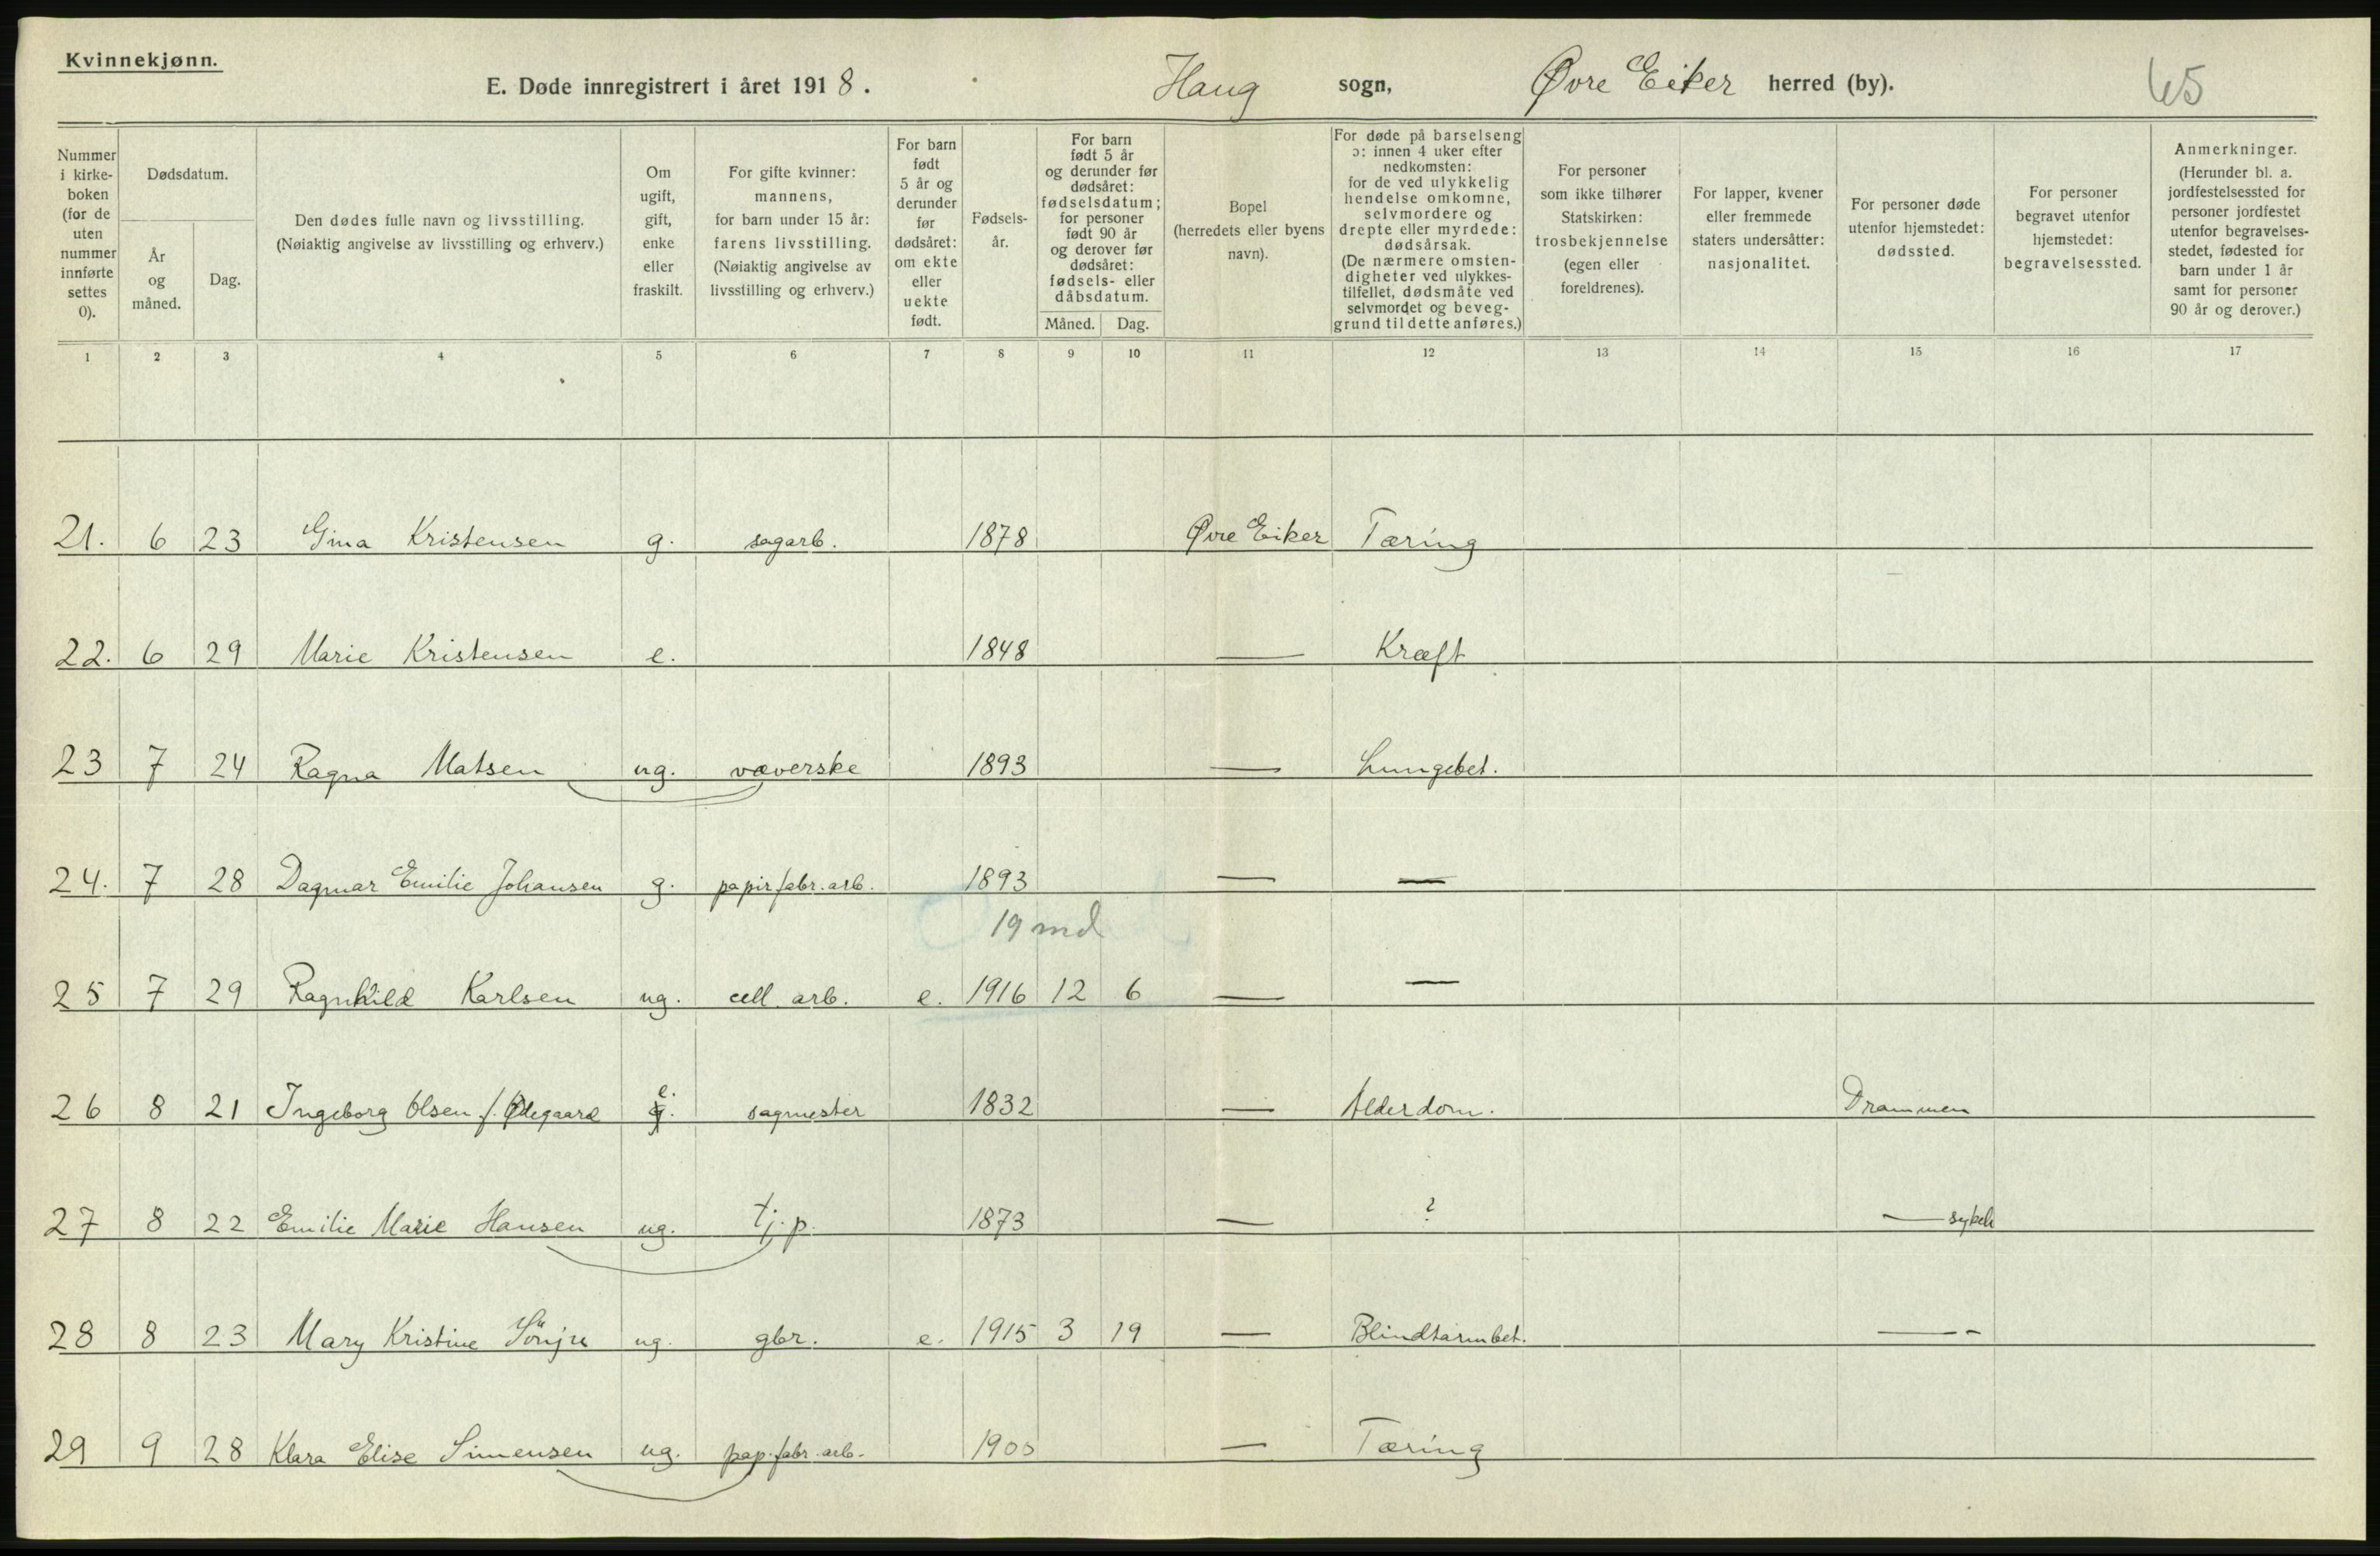 Kvinnekjønn.
E. Døde innregistrert i året 1918. Haug sogn, Øvre Eiker herred (by). 65
Nummer i kirke-boken (for de uten nummer innførte settes 0).
Dødsdatum.
År og måned.
Dag.
Den dødes fulle navn og livsstilling.
(Nøiaktig angivelse av livsstilling og erhverv.)
Om ugift, gift, enke eller fraskilt.
For gifte kvinner: mannens, for barn under 15 år: farens livsstilling. (Nøiaktig angivelse av livsstilling og erhverv.)
For barn født 5 år og derunder før dødsåret: om ekte eller uekte født.
Fødsels-år.
For barn født 5 år og derunder før dødsåret: fødselsdatum; for personer født 90 år og derover før dødsåret: fødsels- eller dåbsdatum.
Måned. Dag.
Bopel (herredets eller byens navn).
For døde på barselseng ɔ: innen 4 uker efter nedkomsten: for de ved ulykkelig hendelse omkomne, selvmordere og drepte eller myrdede: dødsårsak. (De nærmere omsten-digheter ved ulykkes-tilfellet, dødsmåte ved selvmordet og beveg-grund til dette anføres.)
For personer som ikke tilhører Statskirken: trosbekjennelse (egen eller foreldrenes).
For lapper, kvener eller fremmede staters undersåtter: nasjonalitet.
For personer døde utenfor hjemstedet: dødssted.
For personer begravet utenfor hjemstedet: begravelsessted.
Anmerkninger. (Herunder bl. a. jordfestelsessted for personer jordfestet utenfor begravelses-stedet, fødested for barn under 1 år samt for personer 90 år og derover.)
1 2 3 4 5 6 7 8 9 10 11 12 13 14 15 16 17
21. 6 23 Gina Kristensen g. sagarb. 1878 Øvre Eiker Tæring
22. 6 29 Marie Kristensen e. 1848 — Kræft
23 7 24 Ragna Matsen ug. væverske 1893 — Lungebet.
24. 7 28 Dagmar Emilie Johansen g. papirfabr.arb. 1893 — —
19 md
25 7 29 Ragnhild Karlsen ug. cell. arb. e. 1916 12 6 — —
e.
26 8 21 Ingeborg Olsen f. Ødegaard g. sagmester 1832 — Alderdom. Drammen
27 8 22 Emilie Marie Hansen ug. tj. p. 1873 — ? — sykeh
28 8 23 Mary Kristine ug. gbr. e. 1915 3 19 — Blindtarmbet. — -
29 9 28 Klara Elise Simensen ug. pap.fabr.arb. 1900 — Tæring